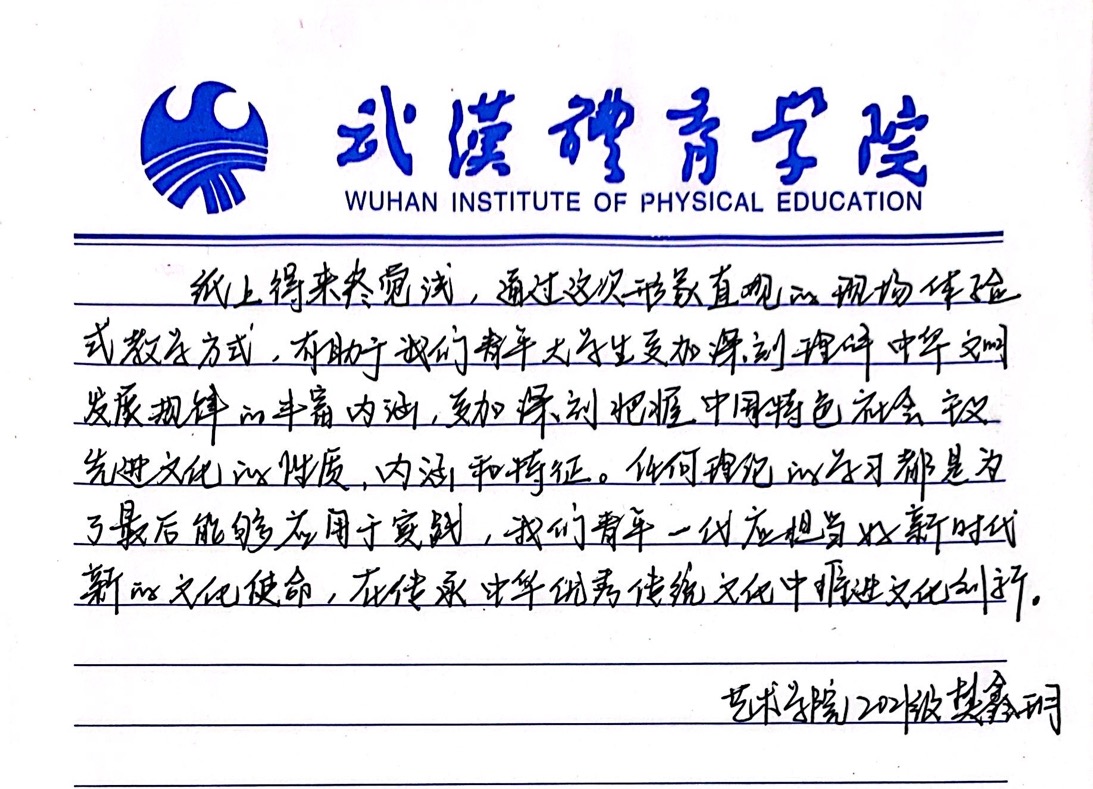 武漢體育学院
WUHAN INSTITUTE OF PHYSICAL EDUCATION
纸上得来终觉浅，通过这次形象直观的现场体验
式教学方式，有助于我们青年大学生更加深刻理解中华文明
发展规律的丰富内涵，更加深刻把握中国特色社会主义
先进文化的性质、内涵和特征。任何理论的学习都是为
了最后能够应用于实践，我们青年一代应担当好新时代
新的文化使命，在传承中华优秀传统文化中推进文化创新。
艺术学院2021级樊鑫玥